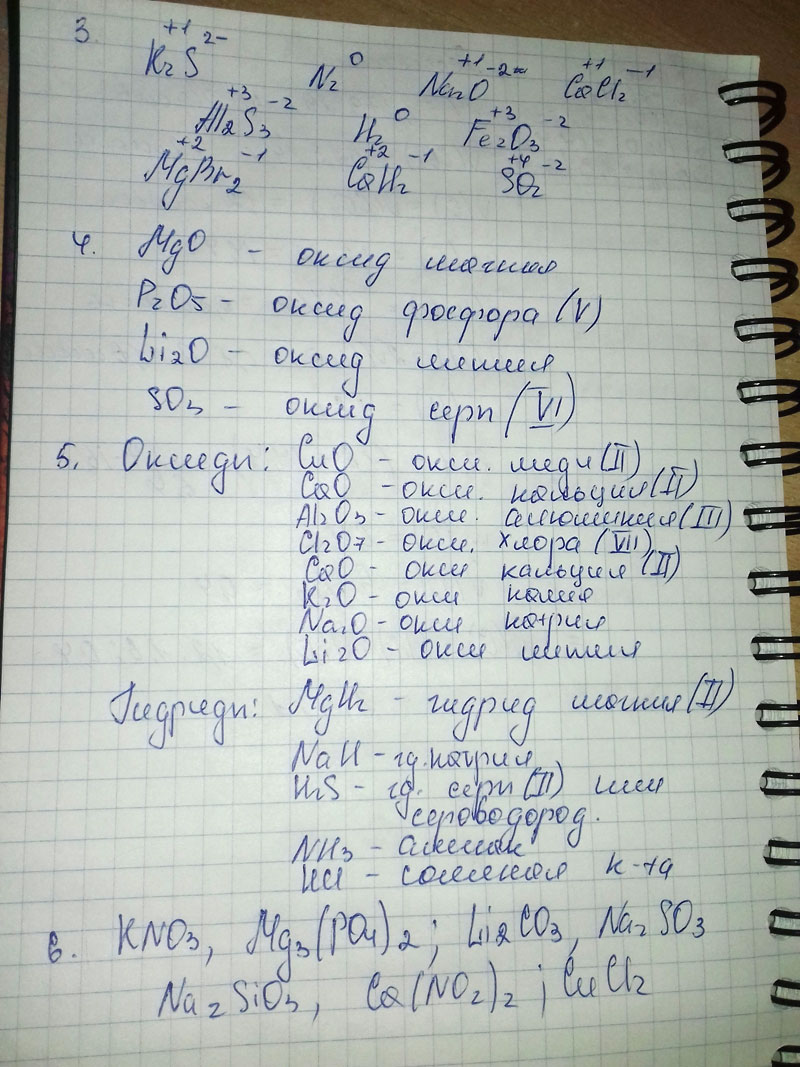 3. K₂⁺¹S²⁻ N₂⁰ Na₂⁺¹O⁻² Ca⁺¹Cl₂⁻¹
Al₂⁺³S₃⁻² H₂⁰ Fe₂⁺³O₃⁻²
Mg⁺²Br₂⁻¹ Ca⁺²H₂⁻¹ S⁺⁴O₂⁻²
4. MgO – оксид магния
P₂O₅ – оксид фосфора (V)
Li₂O – оксид лития
SO₃ – оксид серы (VI)
5. Оксиды: CuO – окси. меди (II)
CaO – окси. кальция (II)
Al₂O₃ – окси. алюминия (III)
Cl₂O₇ – окси. хлора (VII)
CaO – окси кальция (II)
K₂O – окси калия
Na₂O – окси натрия
Li₂O – окси лития
Гидриды: MgH₂ – гидрид магния (II)
NaH – гд. натрия
H₂S – гд. серы (II) или
сероводород.
NH₃ – аммиак
HCl – соляная к-та
6. KNO₃, Mg₃(PO₄)₂; Li₂CO₃, Na₂SO₃
Na₂SiO₃, Ca(NO₂)₂; CuCl₂